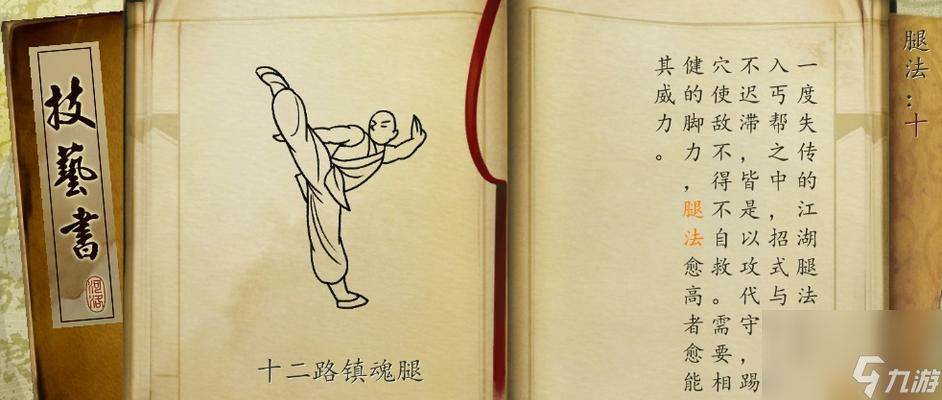 技藝書
河洛
十二路镇魂腿
腿法：十
一度失传的江湖腿法
入丐帮之中，招式与
不迟滞，皆是以攻代守，踢
穴使敌不得不自救。需要相
健的脚力，腿法愈高者愈能
其威力。
九游